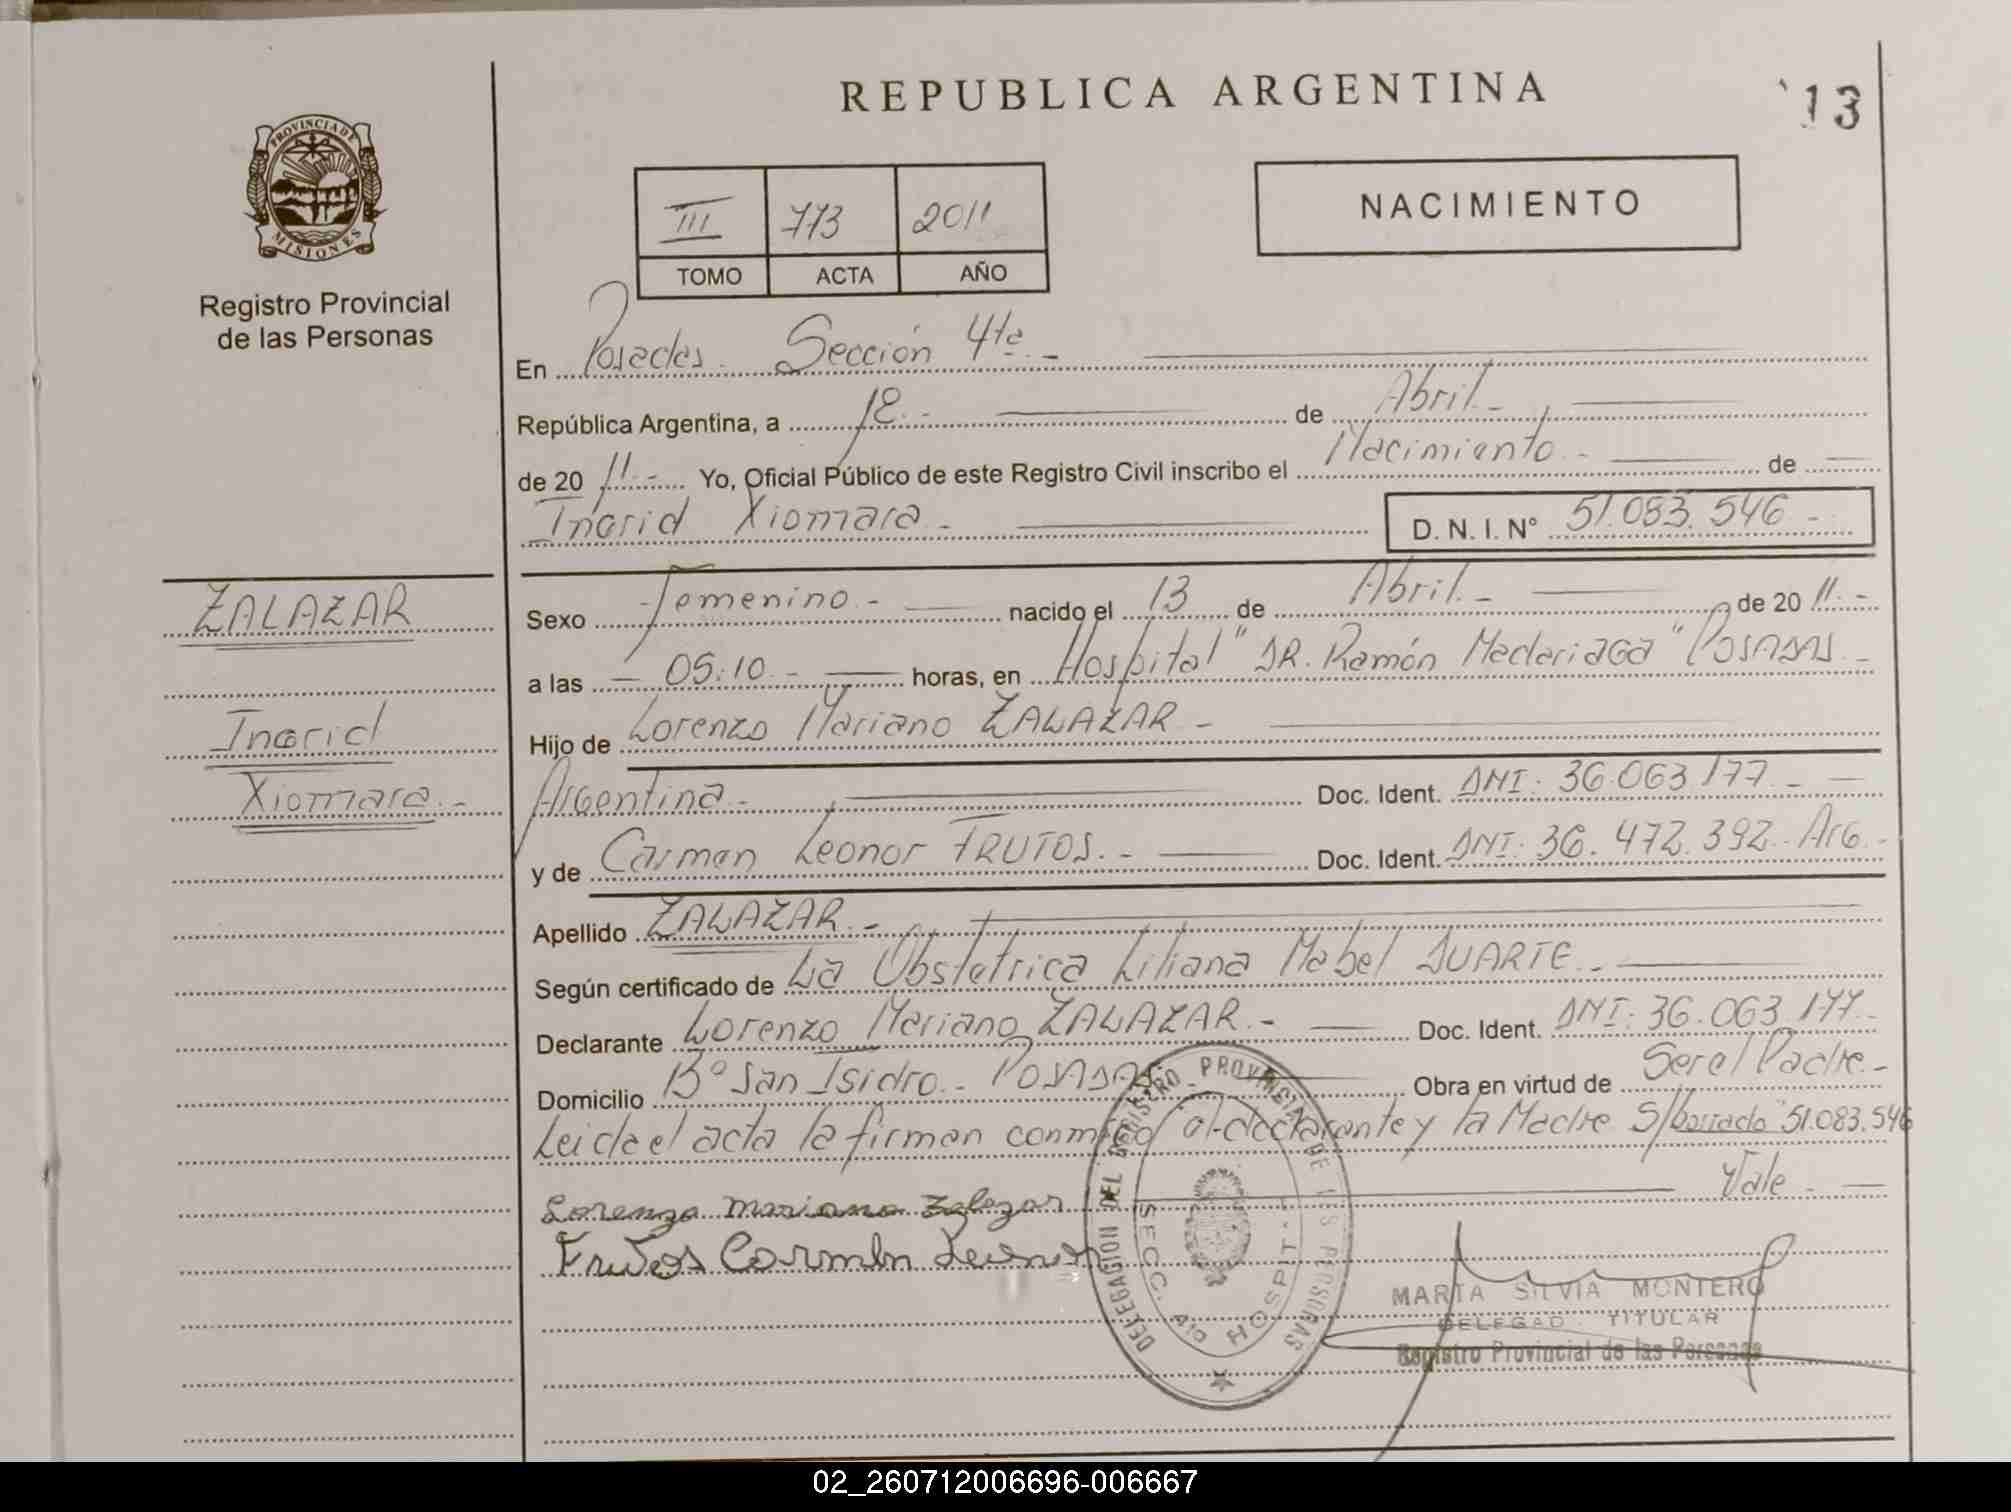 REPUBLICA ARGENTINA
13
PROVINCIA DE
MISIONES
Registro Provincial
de las Personas
III 773 2011
TOMO ACTA AÑO
NACIMIENTO
En Posadas Sección 4ta -
República Argentina, a 18.- de Abril.-
de 20 11.- Yo, Oficial Público de este Registro Civil inscribo el Nacimiento.- de
Ingrid Xiomara.- D. N. I. N° 51.083.546 -
ZALAZAR
Ingrid
Xiomara.-
Sexo Femenino.- nacido el 13 de Abril.- de 20 11.-
a las - 05:10.- horas, en Hospital "DR. Ramón Madariaga" Posadas.-
Hijo de Lorenzo Mariano ZALAZAR -
Argentina.- Doc. Ident. DNI: 36.063.177.-
y de Carmen Leonor FRUTOS.- Doc. Ident. DNI: 36.472.392.- Arg.-
Apellido ZALAZAR.-
Según certificado de La Obstetrica Liliana Mabel DUARTE.-
Declarante Lorenzo Mariano ZALAZAR.- Doc. Ident. DNI: 36.063.177.-
Domicilio B° San Isidro.- Posadas.- Obra en virtud de Ser el Padre.-
Leida el acta la firman conmigo el declarante y la Madre S/borrado "51.083.546
Vale.-
Lorenzo Mariano Zalazar
Frutos Carmen Leonor
DELEGACION DEL REGISTRO PROVINCIAL DE LAS PERSONAS
SECC. 4ta HOSPIT.
MARTA SILVIA MONTERO
DELEGAD TITULAR
Registro Provincial de las Personas
02_260712006696-006667